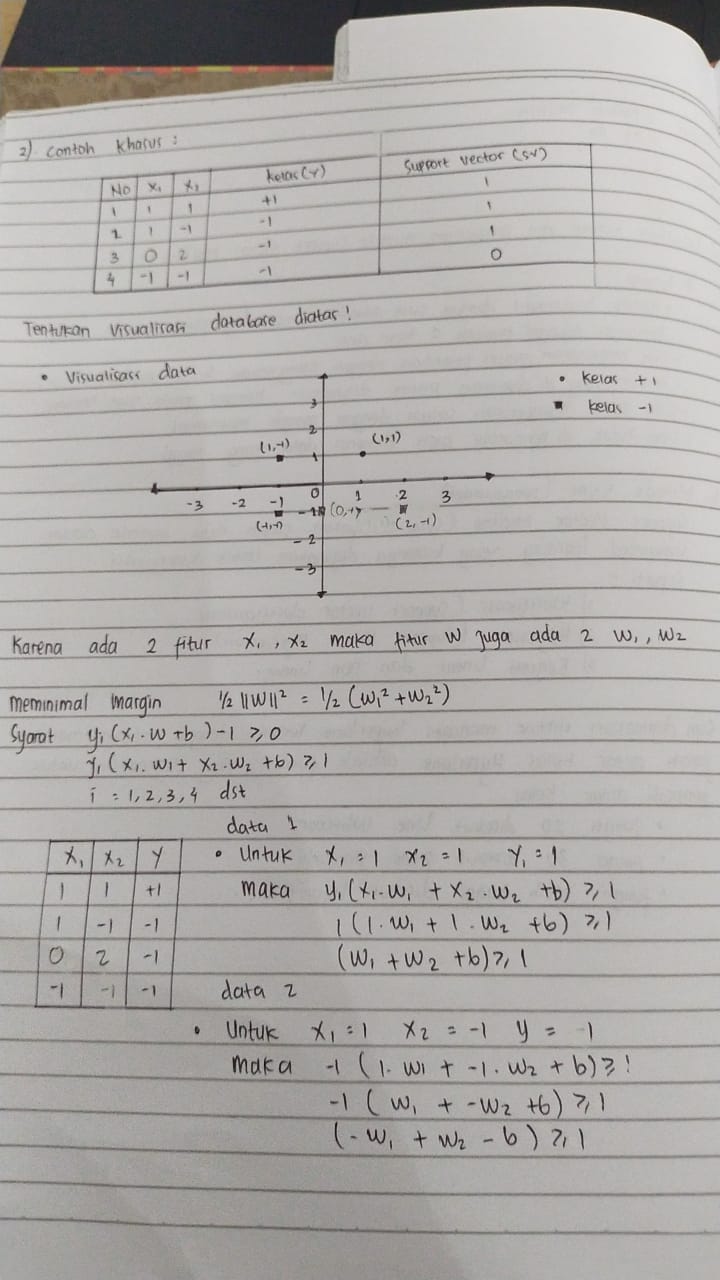 2) Contoh Khasus :
No X₁ X₂ Kelas (Y) Support Vector (SV)
1 1 1 +1 1
2 1 -1 -1 1
3 0 2 -1 1
4 -1 -1 -1 0
Tentukan Visualisasi database diatas!
• Visualisasi data
• Kelas +1
▪ Kelas -1
3
2
(1,-1) 1 (1,1)
-3 -2 -1 0 1 2 3
(-1,-1) -1 (0,-1) (2,-1)
-2
-3
Karena ada 2 fitur X₁, X₂ maka fitur W juga ada 2 W₁, W₂
Meminimal Margin ½ ||W||² = ½ (W₁² + W₂²)
Syarat yᵢ (X₁ . W + b) - 1 ≥ 0
y₁ (X₁. W₁ + X₂ . W₂ + b) ≥ 1
i = 1, 2, 3, 4 dst
data 1
X₁ X₂ Y
1 1 +1
1 -1 -1
0 2 -1
-1 -1 -1
• Untuk X₁ = 1 X₂ = 1 Y₁ = 1
maka y₁ (X₁. W₁ + X₂ . W₂ + b) ≥ 1
1 (1. W₁ + 1 . W₂ + b) ≥ 1
(W₁ + W₂ + b) ≥ 1
data 2
• Untuk X₁ = 1 X₂ = -1 y = -1
maka -1 (1. W₁ + -1. W₂ + b) ≥ 1
-1 ( W₁ + -W₂ + b) ≥ 1
(- W₁ + W₂ - b) ≥ 1